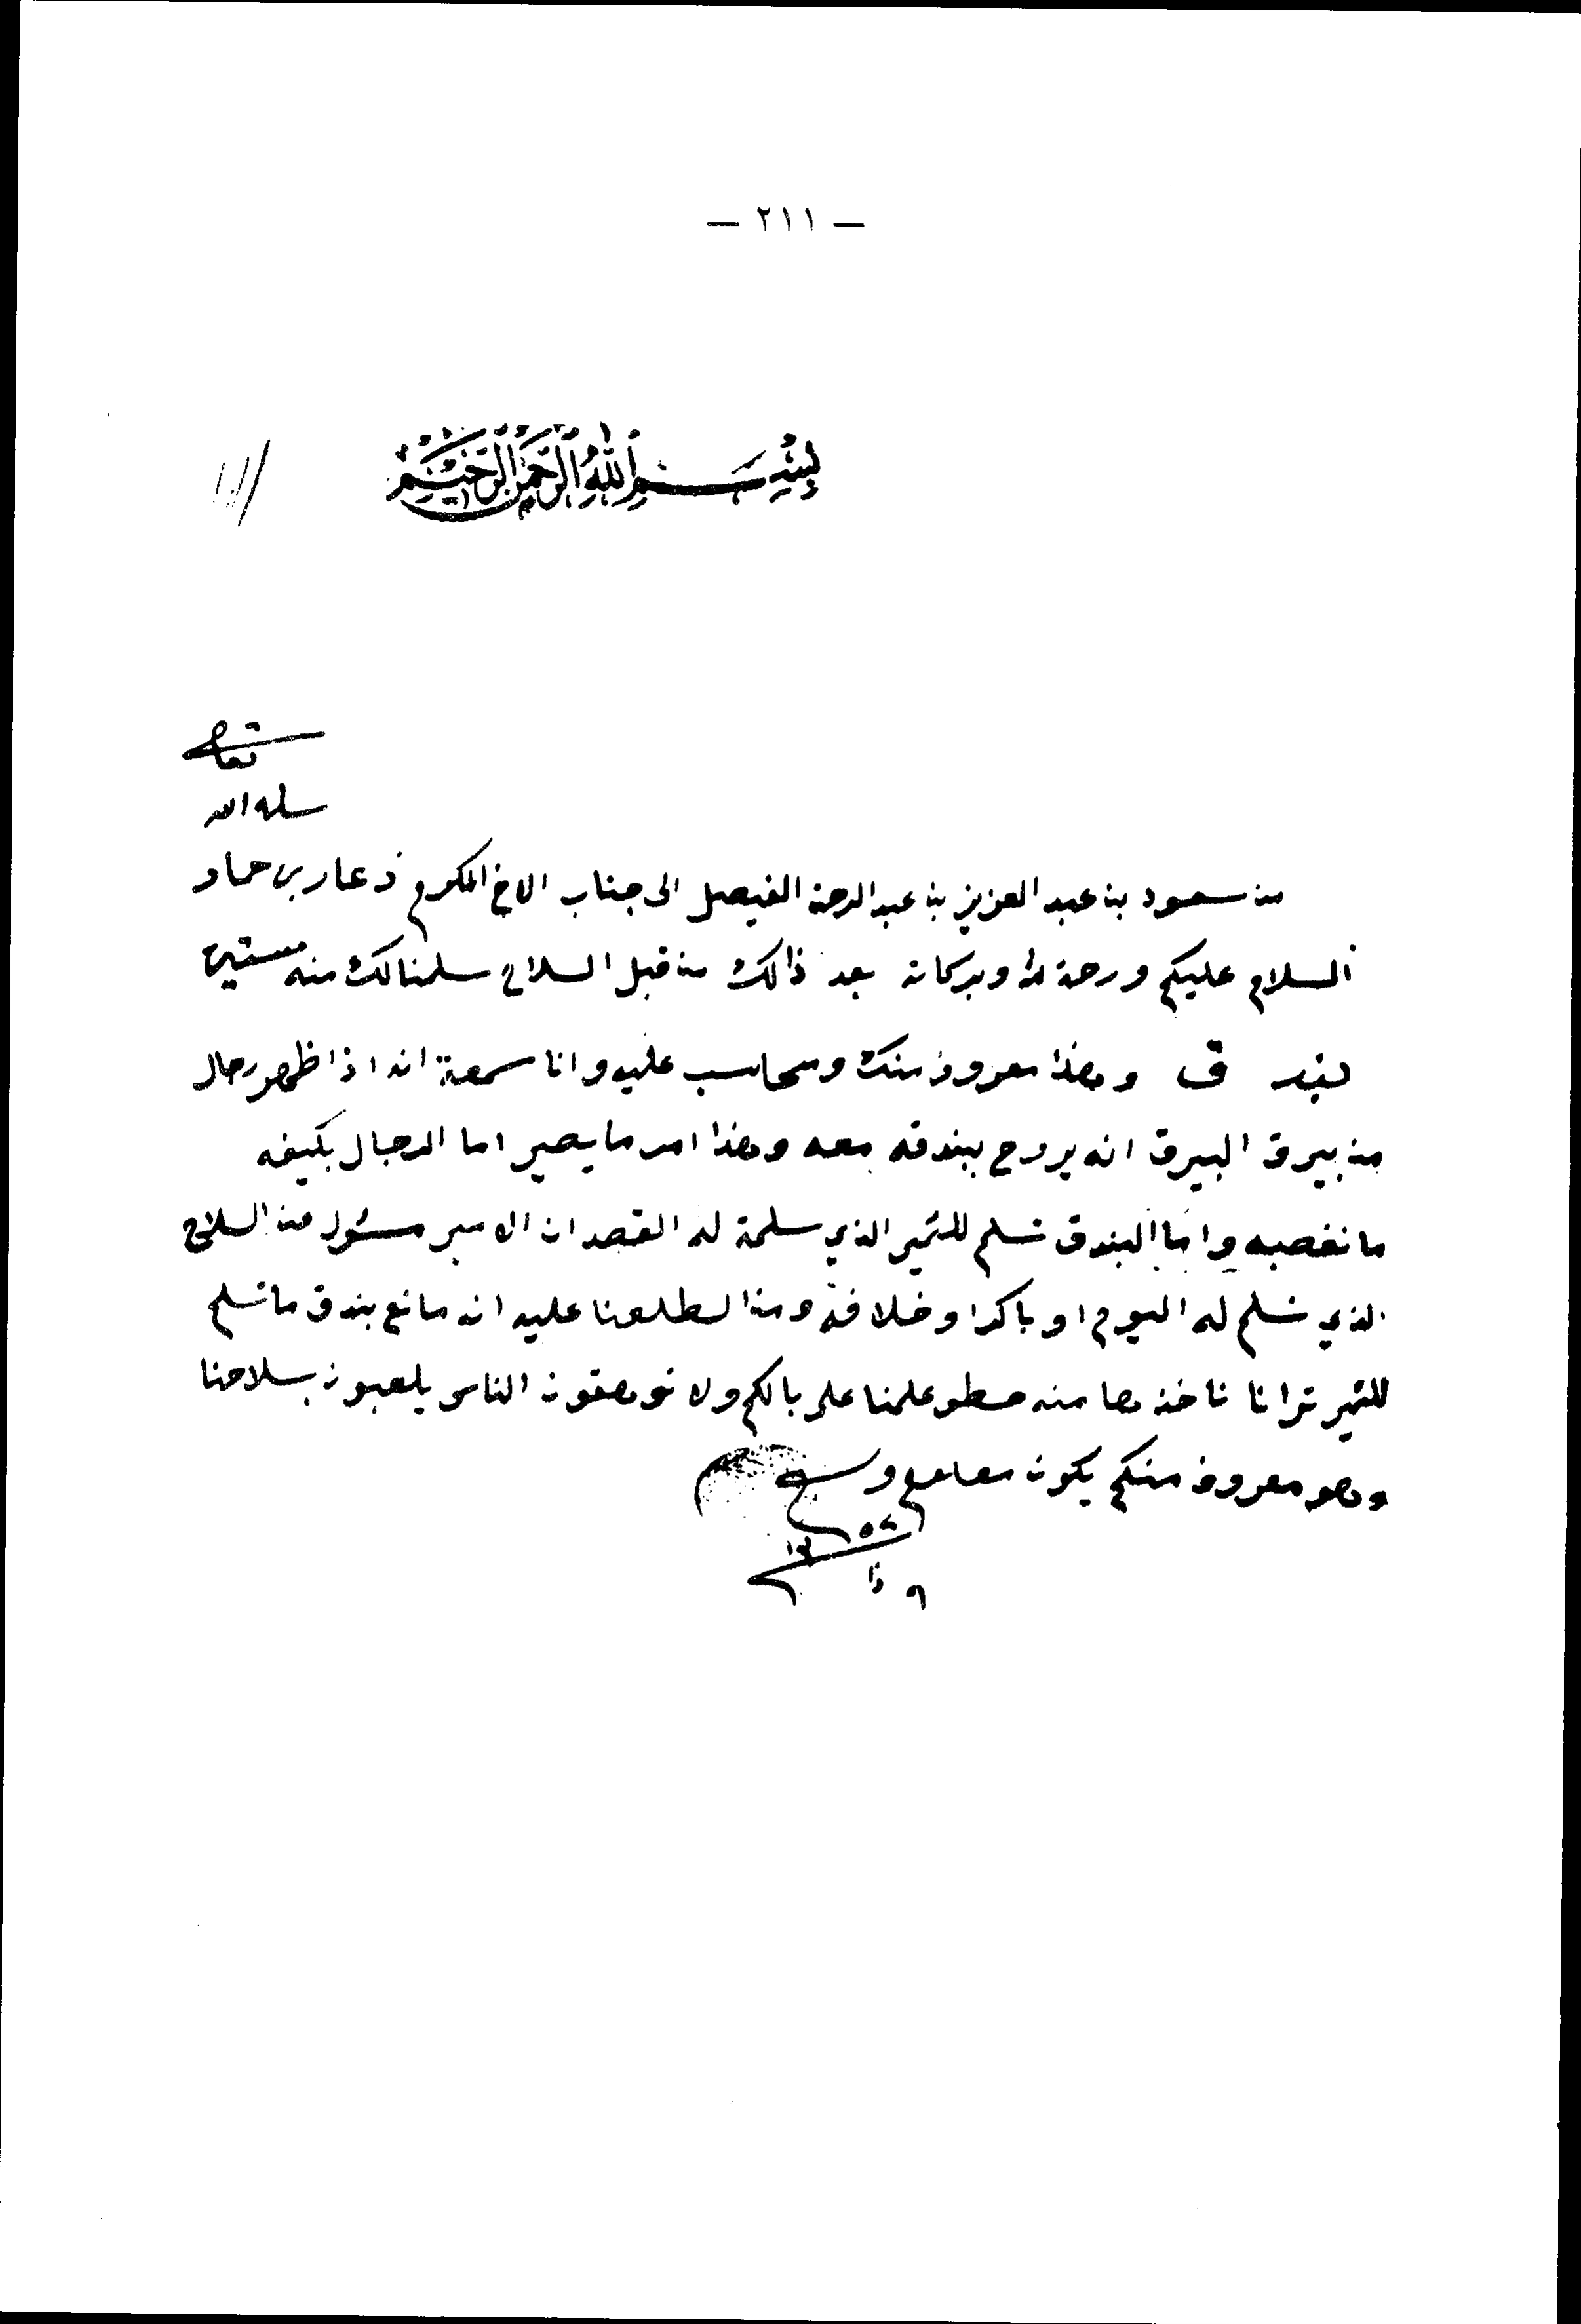 — ٢١١ —
بسم الله الرحمن الرحيم
تعالى
سلمه الله
من سعود بن عبد العزيز بن عبد الرحمن الفيصل الى جناب الاخ المكرم ذعار بن حماد
السلام عليكم ورحمة الله وبركاته بعد ذالك من قبل السلاح سلمنا لك منه ستين
بندق وهذا معروف منك ومحاسب عليه وانا سمعة انه اذا ظهر رجال
من بيرق البيرق انه يروح ببندقه معه وهذا امر ما يصير اما الرجال بكيفه
ما نغصبه واما البندق تسلم للامير الذي سلمة له القصد ان الامير مسئول عن السلاح
الذي نسلم له اليوم او باكر او خلافه ومن اطلعنا عليه انه مانع بندق ما تسلم
للامير ترانا ناخذها منه حطو علمنا على بالكم ولا الناس يلعبون بسلاحنا
وهو معروف منكم يكون معلوم و
٩ ذا ٥٧ ١٣